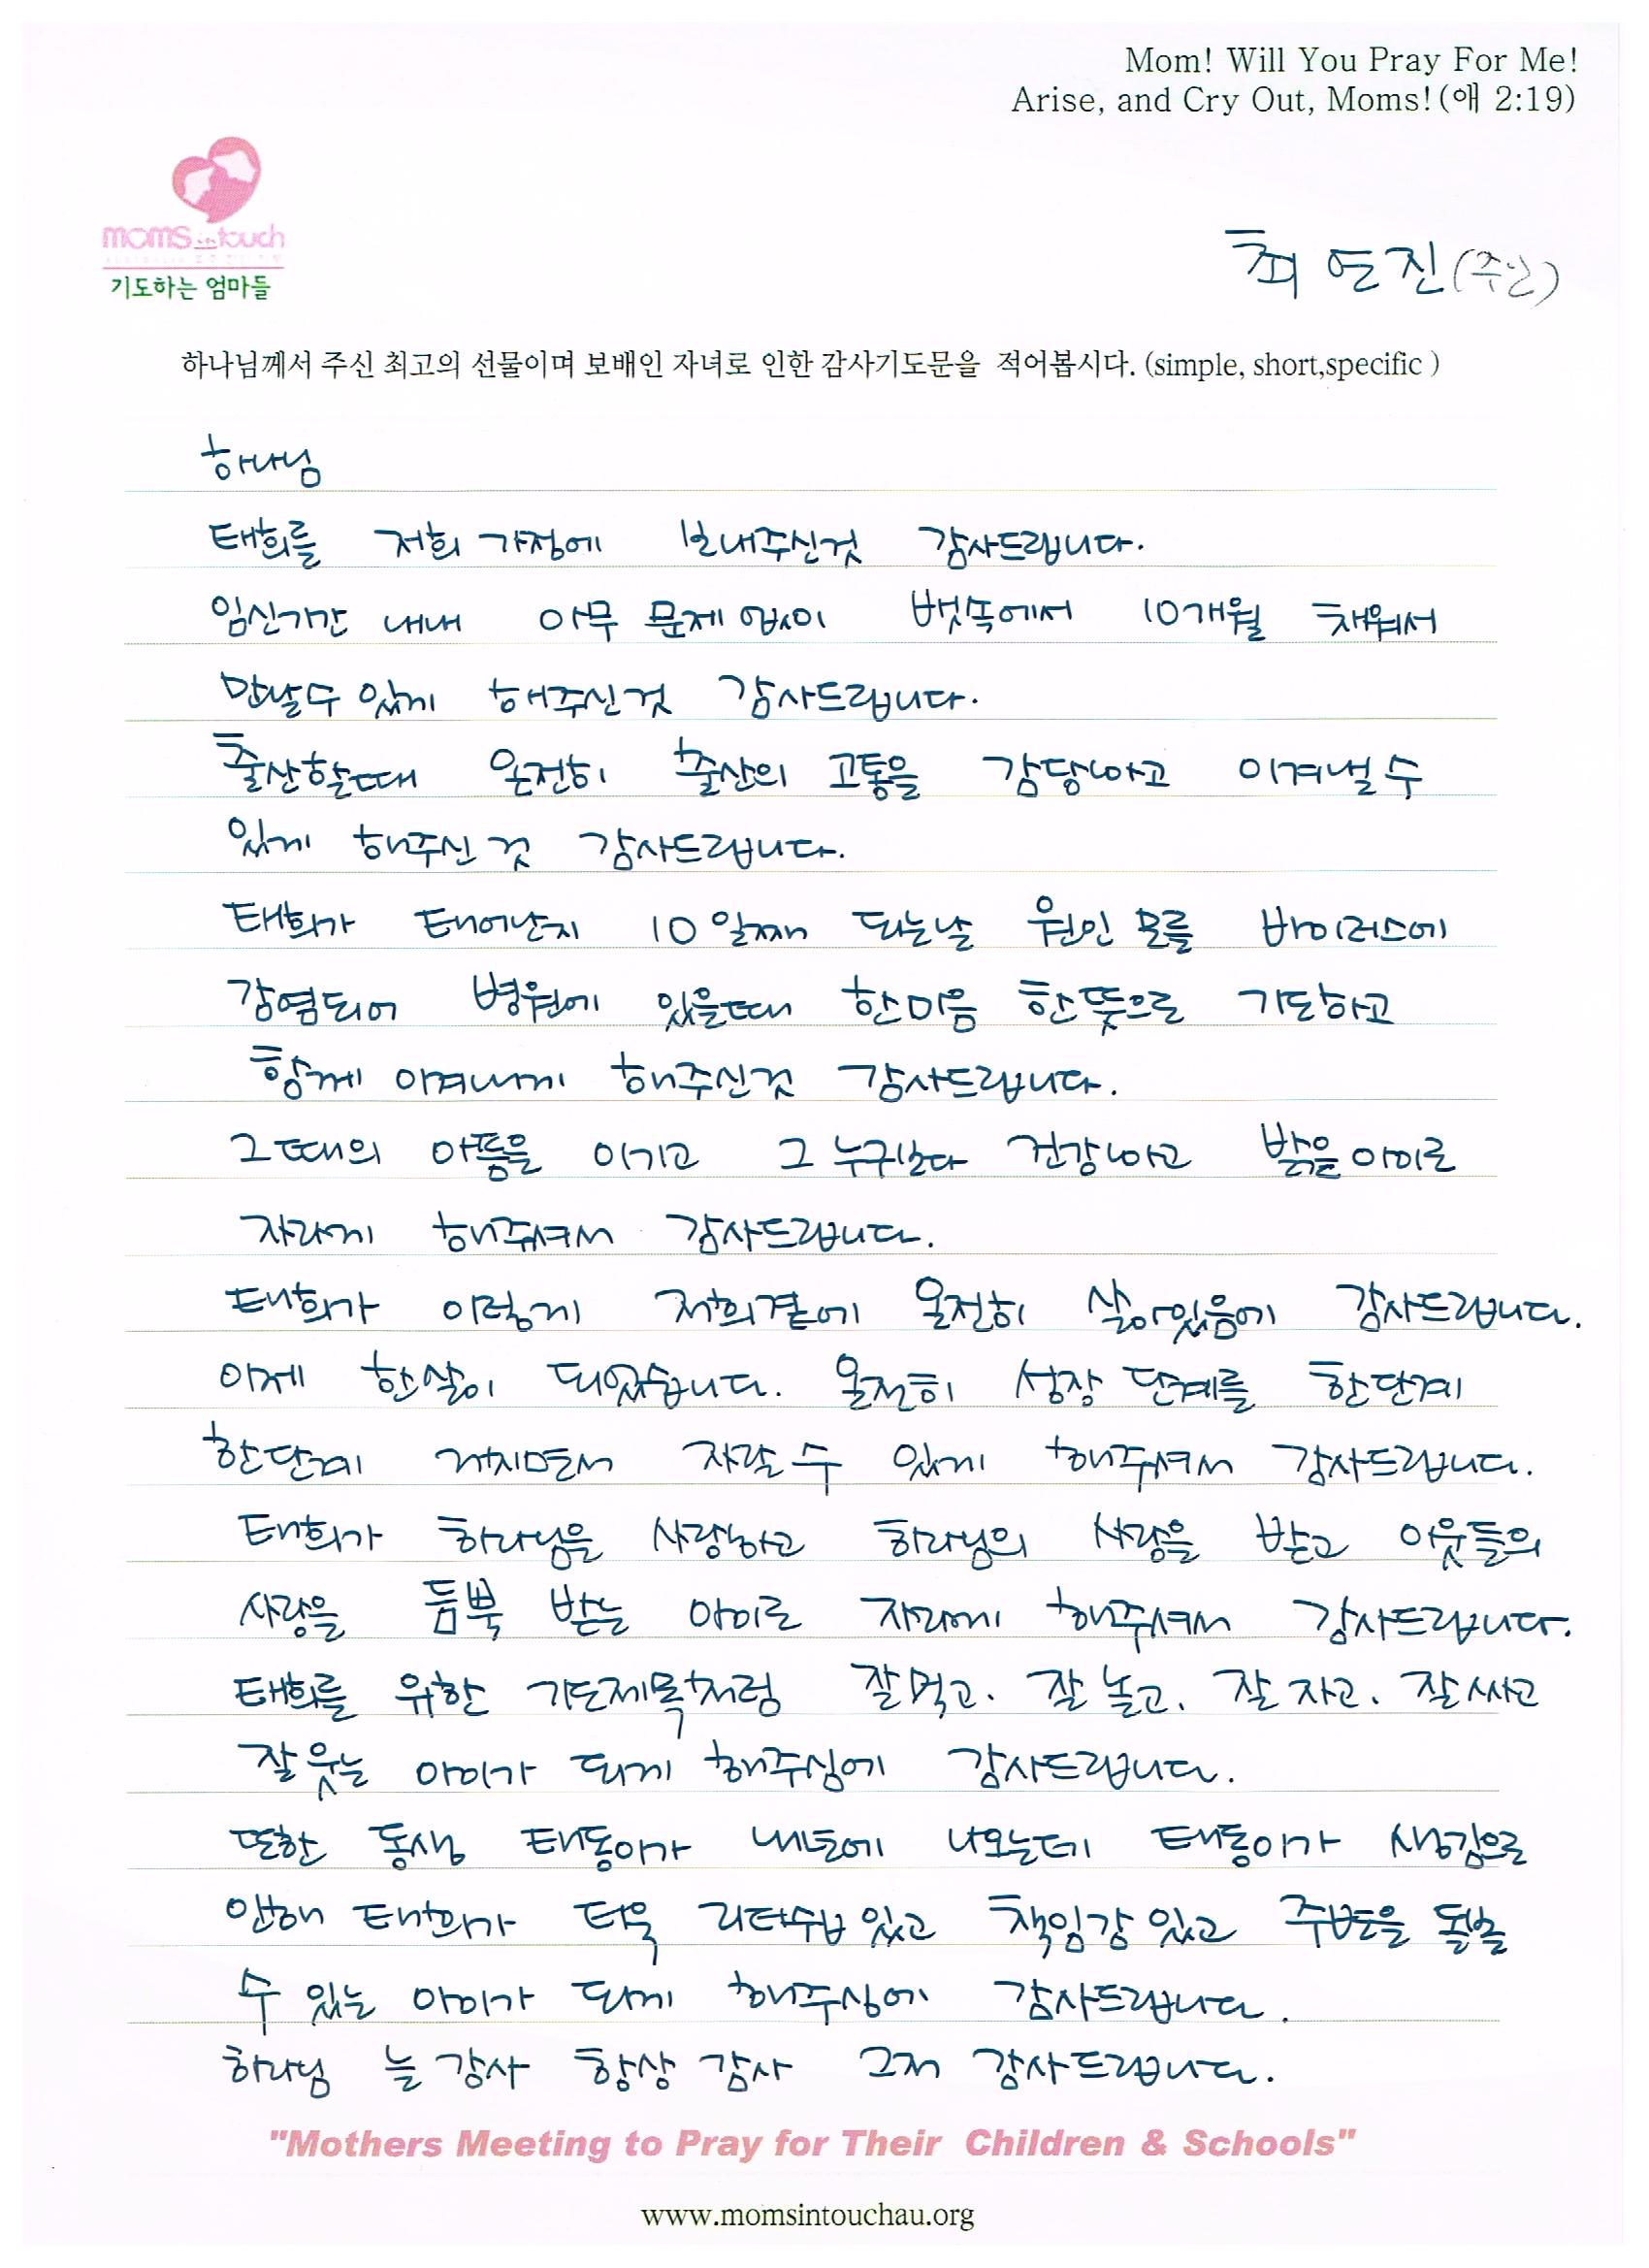 Mom! Will You Pray For Me!
Arise, and Cry Out, Moms!(애 2:19)
moms in touch
기도하는 엄마들
최연진(주안)
하나님께서 주신 최고의 선물이며 보배인 자녀로 인한 감사기도문을 적어봅시다. (simple, short,specific )
하나님
태희를 저희 가정에 보내주신것 감사드립니다.
임신기간 내내 아무 문제 없이 뱃속에서 10개월 채워서
만날수 있게 해주신것 감사드립니다.
출산할때 온전히 출산의 고통을 감당하고 이겨낼 수
있게 해주신 것 감사드립니다.
태희가 태어난지 10일째 되는날 원인 모를 바이러스에
감염되어 병원에 있을때 한마음 한뜻으로 기도하고
함께 이겨내게 해주신것 감사드립니다.
그때의 아픔을 이기고 그 누구보다 건강하고 밝은 아이로
자라게 해주셔서 감사드립니다.
태희가 이렇게 저희곁에 온전히 살아있음에 감사드립니다.
이제 한살이 되었습니다. 온전히 성장 단계를 한단계
한단계 거치면서 자랄 수 있게 해주셔서 감사드립니다.
태희가 하나님을 사랑하고 하나님의 사랑을 받고 이웃들의
사랑을 듬뿍 받는 아이로 자라게 해주셔서 감사드립니다.
태희를 위한 기도제목처럼 잘먹고. 잘 놀고. 잘 자고. 잘 싸고
잘 웃는 아이가 되게 해주심에 감사드립니다.
또한 동생 태동이가 내년에 나오는데 태동이가 생김으로
인해 태희가 더욱 리더쉽 있고 책임감 있고 주변을 돌볼
수 있는 아이가 되게 해주심에 감사드립니다.
하나님 늘 감사 항상 감사 그저 감사드립니다.
"Mothers Meeting to Pray for Their Children & Schools"
www.momsintouchau.org